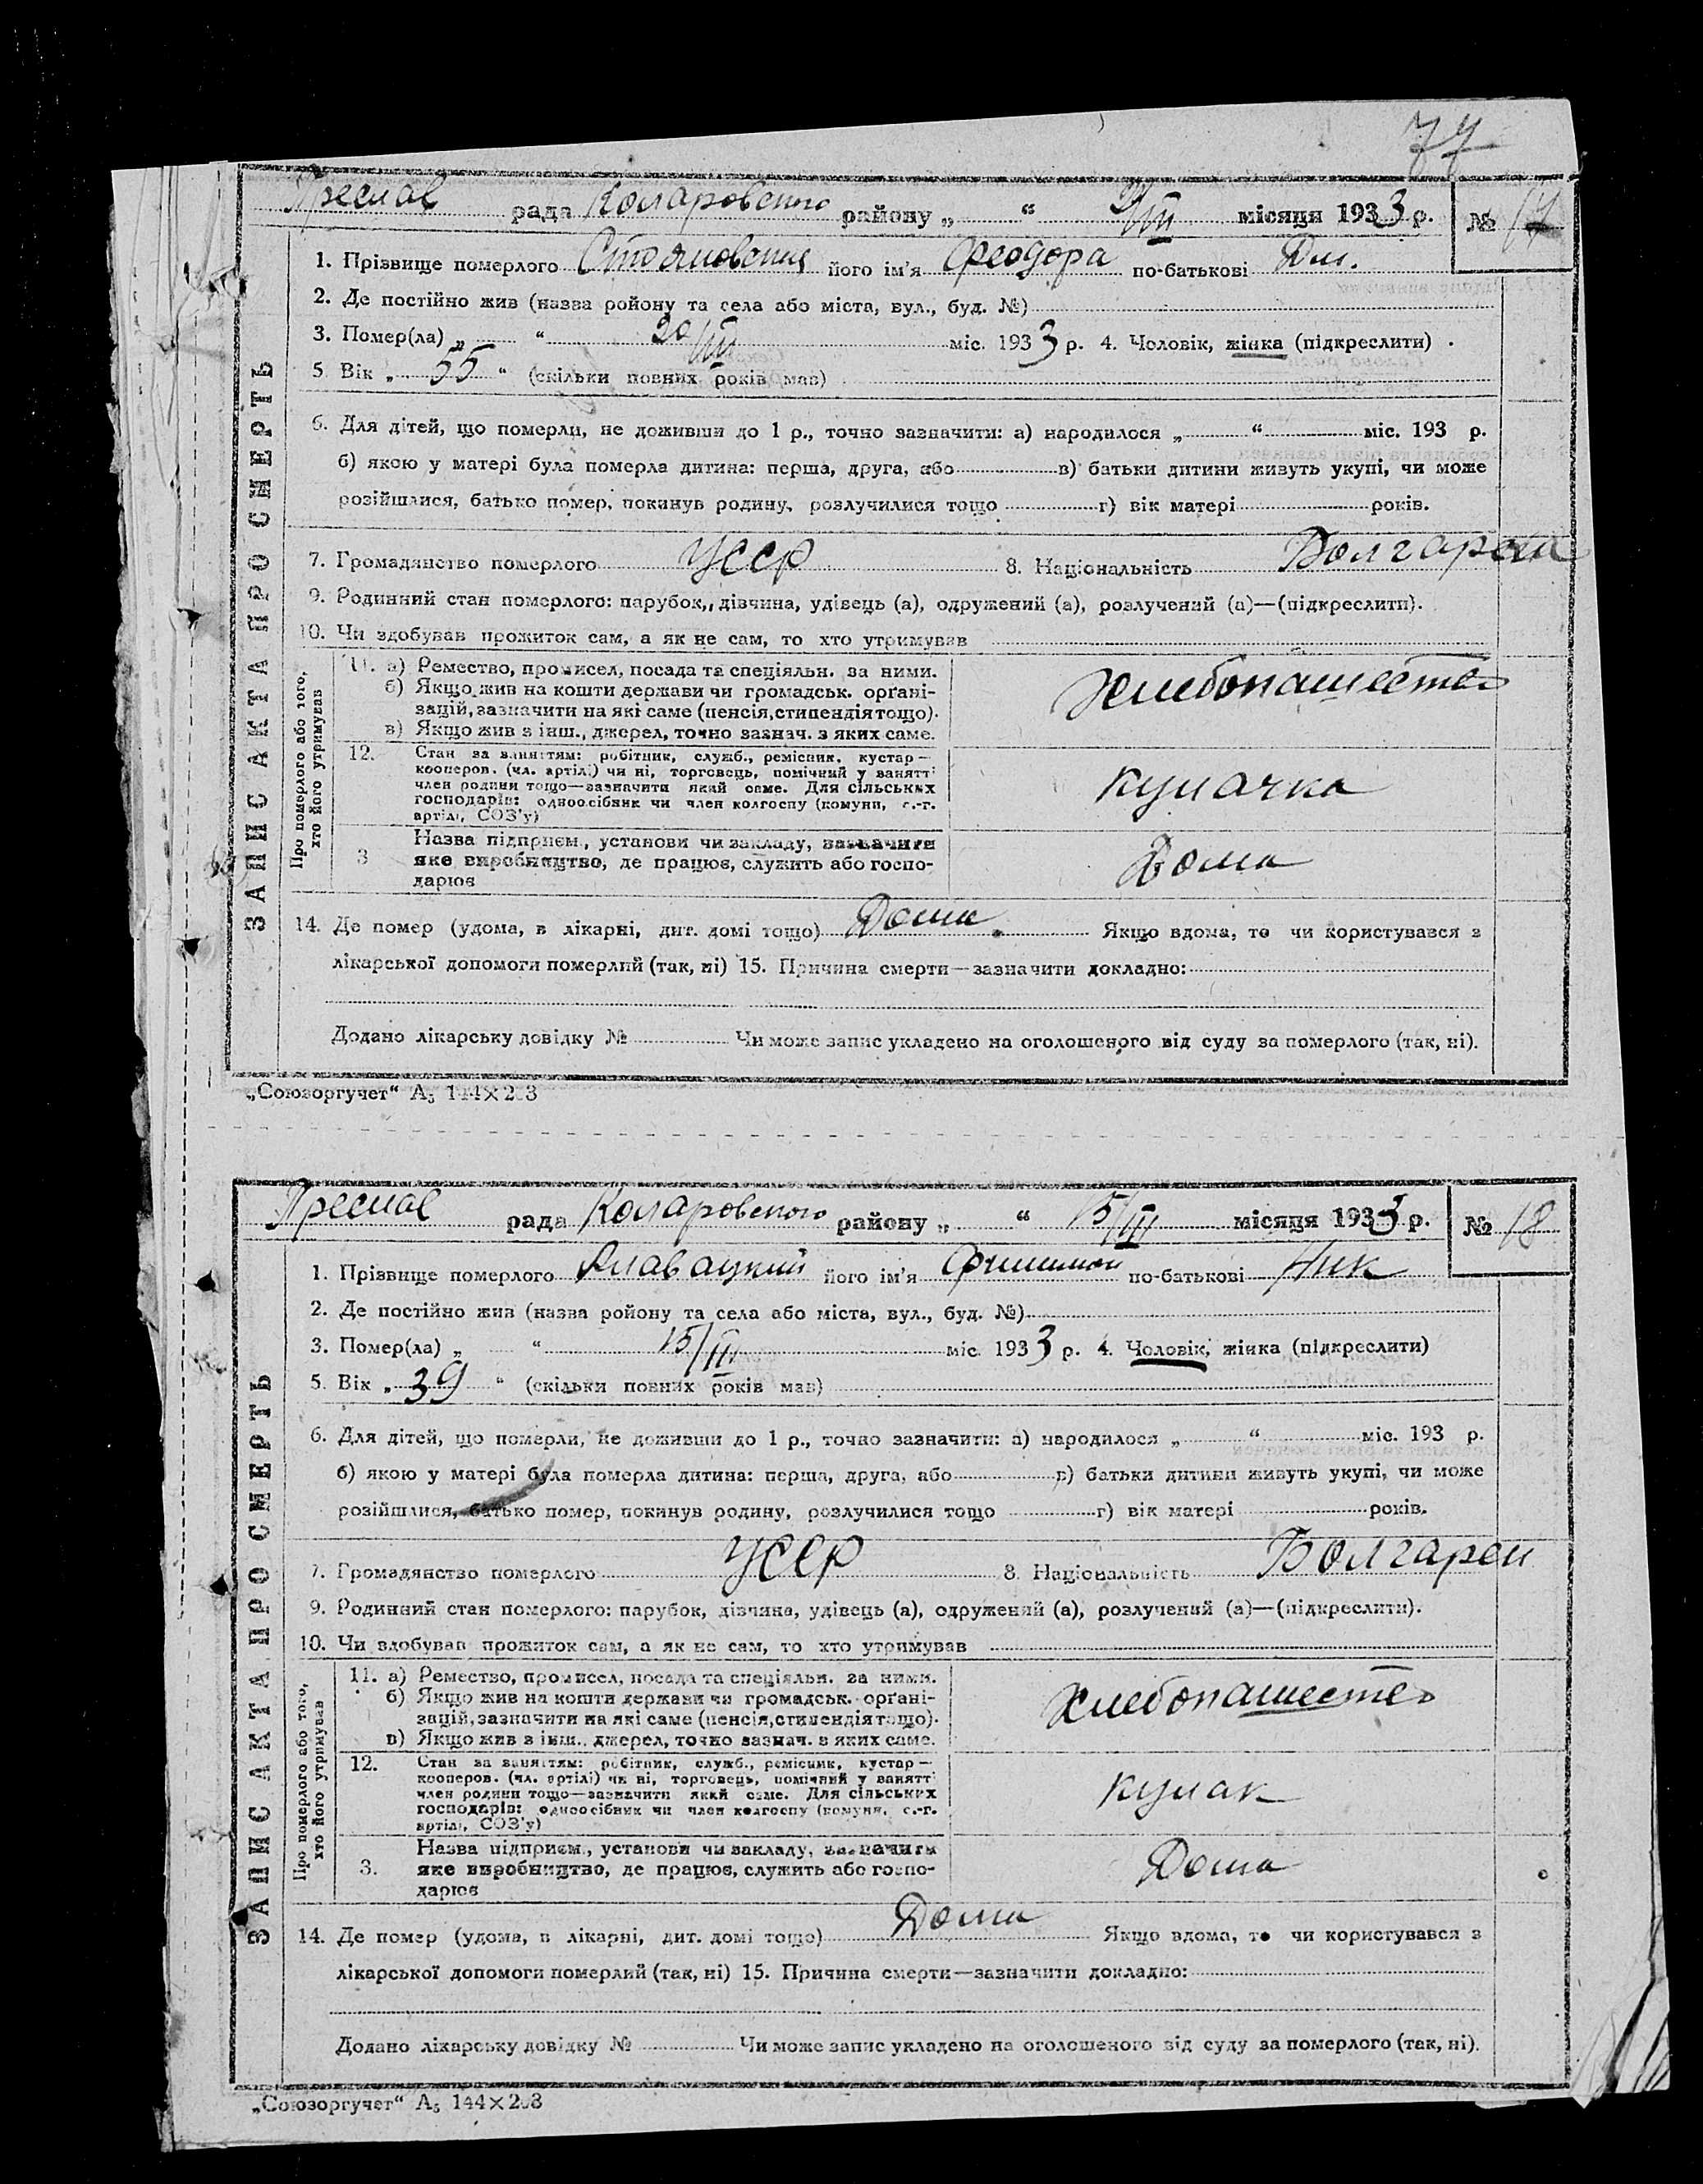 77
Преслав рада Коларовского району „ “ /III місяця 1933 р. № 17
ЗАПИС АКТА ПРО СМЕРТЬ
1. Прізвище померлого його ім'я Феодора по-батькові Дм.
2. Де постійно жив (назва ройону та села або міста, вул., буд. №)
3. Помер(ла) „ “ 20/III міс. 1933 р. 4. Чоловік, жінка (підкреслити)
5 Вік „ 55 “ (скільки повних років мав)
6. Для дітей, що померли, не доживши до 1 р., точно зазначити: а) народилося „ “ міс. 193 р.
б) якою у матері була померла дитина: перша, друга, або в) батьки дитини живуть укупі, чи може
розійшлися, батько помер, покинув родину, розлучилися тощо г) вік матері років.
7. Громадянство померлого УССР 8. Національність
9. Родинний стан померлого: парубок, дівчина, удівець (а), одружений (а), розлучений (а)—(підкреслити).
10. Чи здобував прожиток сам, а як не сам, то хто утримував
Про померлого або того,
хто його утримував
11. а) Ремество, промисел, посада та спеціяльн. за ними.
б) Якщо жив на кошти держави чи громадськ. орґані-
зацій, зазначити на які саме (пенсія, стипендія тощо).
в) Якщо жив з інш., джерел, точно зазнач. з яких саме.
Хлебопашество
12. Стан за заняттям: робітник, служб., ремісник, кустар—
кооперов. (чл. артілі) чи ні, торговець, помічний у занятті
член родини тощо—зазначити який саме. Для сільських
господарів: одноосібник чи член колгоспу (комуни, с.-г.
артілі, СОЗ'у)
кулачка
3 Назва підприєм., установи чи закладу, зазначити
яке виробництво, де працює, служить або госпо-
дарює
Дома
14. Де помер (удома, в лікарні, дит. домі тощо) Дома. Якщо вдома, то чи користувався з
лікарської допомоги померлий (так, ні) 15. Причина смерти—зазначити докладно:
Додано лікарську довідку № Чи може запис укладено на оголошеного від суду за померлого (так, ні).
„Союзоргучет“ А5 144×203
Преслав рада Коларовского району „ “ 15/III місяця 1933 р. № 18
ЗАПИС АКТА ПРО СМЕРТЬ
1. Прізвище померлого його ім'я Филимон по-батькові Ник
2. Де постійно жив (назва ройону та села або міста, вул., буд. №)
3. Помер(ла) „ “ 15/III міс. 1933 р. 4. Чоловік, жінка (підкреслити)
5. Вік „ 39 “ (скільки повних років мав)
6. Для дітей, що померли, не доживши до 1 р., точно зазначити: а) народилося „ “ міс. 193 р.
б) якою у матері була померла дитина: перша, друга, або в) батьки дитини живуть укупі, чи може
розійшлися, батько помер, покинув родину, розлучилися тощо г) вік матері років.
7. Громадянство померлого УССР 8. Національність Болгарен
9. Родинний стан померлого: парубок, дівчина, удівець (а), одружений (а), розлучений (а)—(підкреслити).
10. Чи здобував прожиток сам, а як не сам, то хто утримував
Про померлого або того,
хто його утримував
11. а) Ремество, промисел, посада та спеціяльн. за ними.
б) Якщо жив на кошти держави чи громадськ. орґані-
зацій, зазначити на які саме (пенсія, стипендія тощо).
в) Якщо жив з інш., джерел, точно зазнач. з яких саме.
Хлебопашество
12. Стан за заняттям: робітник, служб., ремісник, кустар—
кооперов. (чл. артілі) чи ні, торговець, помічний у занятті
член родини тощо—зазначити який саме. Для сільських
господарів: одноосібник чи член колгоспу (комуни, с.-г.
артілі, СОЗ'у)
кулак
3. Назва підприєм., установи чи закладу, зазначити
яке виробництво, де працює, служить або госпо-
дарює
Дома
14. Де помер (удома, в лікарні, дит. домі тощо) Дома Якщо вдома, то чи користувався з
лікарської допомоги померлий (так, ні) 15. Причина смерти—зазначити докладно:
Додано лікарську довідку № Чи може запис укладено на оголошеного від суду за померлого (так, ні).
„Союзоргучет“ А5 144×203